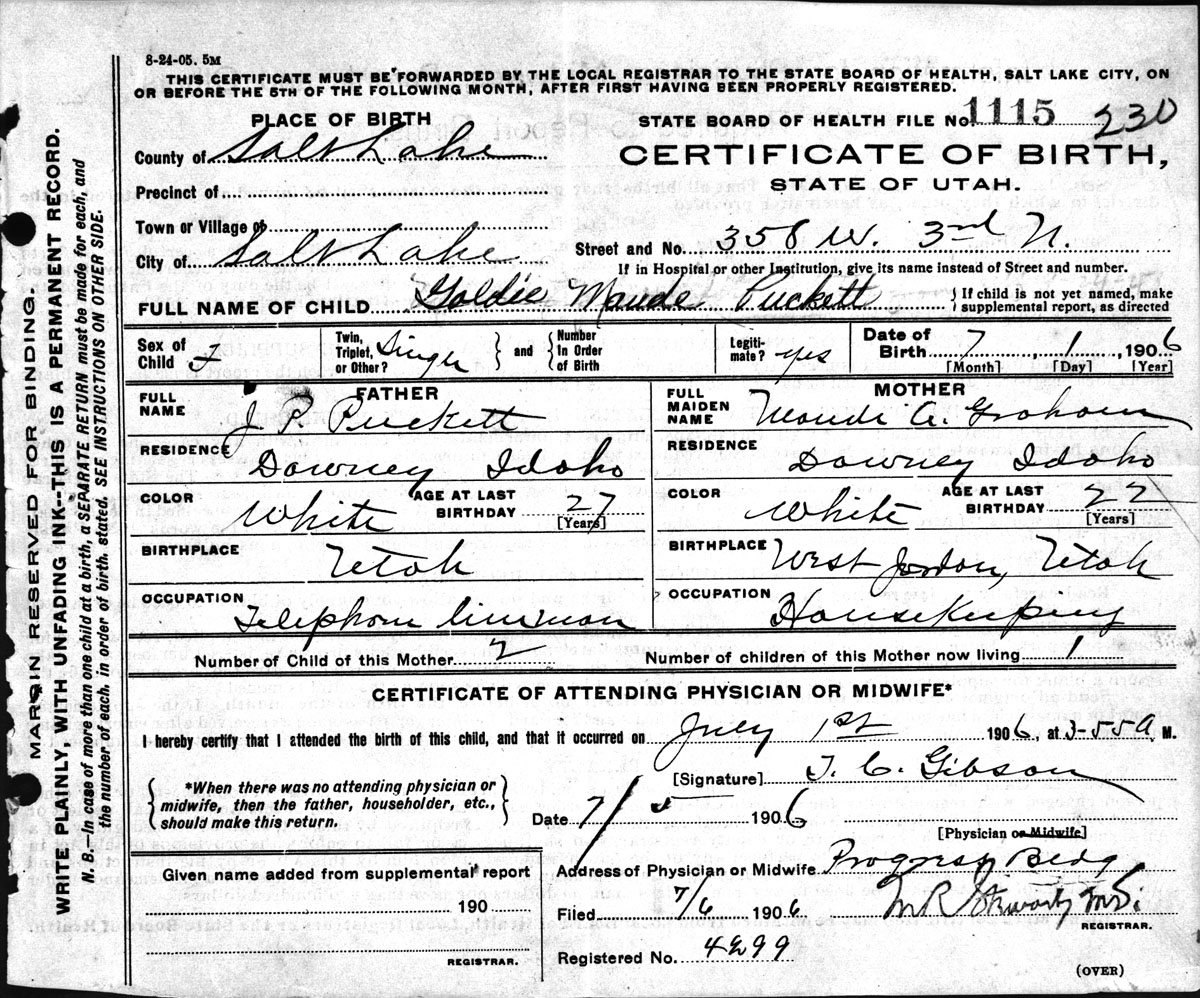 8-24-05. 5M
THIS CERTIFICATE MUST BE FORWARDED BY THE LOCAL REGISTRAR TO THE STATE BOARD OF HEALTH, SALT LAKE CITY, ON
OR BEFORE THE 5TH OF THE FOLLOWING MONTH, AFTER FIRST HAVING BEEN PROPERLY REGISTERED.
PLACE OF BIRTH
STATE BOARD OF HEALTH FILE No. 1115 230
County of Salt Lake
CERTIFICATE OF BIRTH,
STATE OF UTAH.
Precinct of
Town or Village of
City of Salt Lake
Street and No. 358 W. 3rd N.
If in Hospital or other Institution, give its name instead of Street and number.
FULL NAME OF CHILD Goldie Maude Puckett { If child is not yet named, make supplemental report, as directed
Sex of Child F
Twin, Triplet, or Other? Single } and { Number In Order of Birth
Legitimate? yes
Date of Birth 7, 1, 1906
[Month] [Day] [Year]
FATHER
FULL NAME J. P. Puckett
RESIDENCE Downey Idaho
COLOR White AGE AT LAST BIRTHDAY 27 [Years]
BIRTHPLACE Utah
OCCUPATION Telephone lineman
MOTHER
FULL MAIDEN NAME Maude A. Graham
RESIDENCE Downey Idaho
COLOR White AGE AT LAST BIRTHDAY 22 [Years]
BIRTHPLACE West Jordan, Utah
OCCUPATION Housekeeping
Number of Child of this Mother 2 Number of children of this Mother now living 1
CERTIFICATE OF ATTENDING PHYSICIAN OR MIDWIFE*
I hereby certify that I attended the birth of this child, and that it occurred on July 1st 1906, at 3-55 A. M.
{ *When there was no attending physician or midwife, then the father, householder, etc., should make this return. }
[Signature] T. C. Gibson
Date 7/5 1906
[Physician or Midwife]
Given name added from supplemental report
190
REGISTRAR.
Address of Physician or Midwife Progress Bldg
Filed 7/6 1906 M R Stewart M.D.
REGISTRAR.
Registered No. 4299
(OVER)
MARGIN RESERVED FOR BINDING
WRITE PLAINLY, WITH UNFADING INK--THIS IS A PERMANENT RECORD.
N. B.—In case of more than one child at a birth, a SEPARATE RETURN must be made for each, and
the number of each, in order of birth, stated. SEE INSTRUCTIONS ON OTHER SIDE.